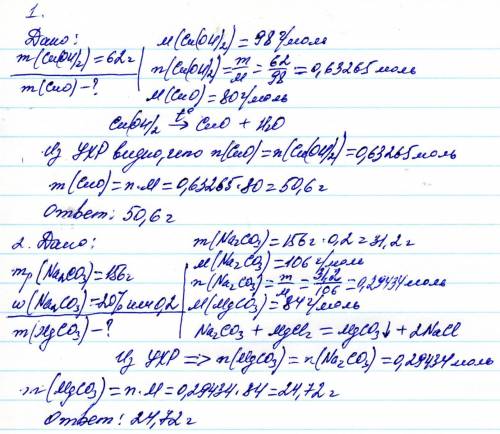 1.
Дано: M(Cu(OH)2) = 98 г/моль
m(Cu(OH)2) = 62 г n(Cu(OH)2) = m/M = 62/98 = 0,63265 моль
m(CuO) - ? M(CuO) = 80 г/моль
Cu(OH)2 t°→ CuO + H2O
Из УХР видно, что n(CuO) = n(Cu(OH)2) = 0,63265 моль
m(CuO) = n·M = 0,63265·80 = 50,6 г
Ответ: 50,6 г
2. Дано: m(Na2CO3) = 156 г · 0,2 = 31,2 г
mр(Na2CO3) = 156 г M(Na2CO3) = 106 г/моль
w(Na2CO3) = 20% или 0,2 n(Na2CO3) = m/M = 31,2/106 = 0,29434 моль
m(MgCO3) - ? M(MgCO3) = 84 г/моль
Na2CO3 + MgCl2 = MgCO3↓ + 2NaCl
Из УХР => n(MgCO3) = n(Na2CO3) = 0,29434 моль
m(MgCO3) = n·M = 0,29434·84 = 24,72 г
Ответ: 24,72 г